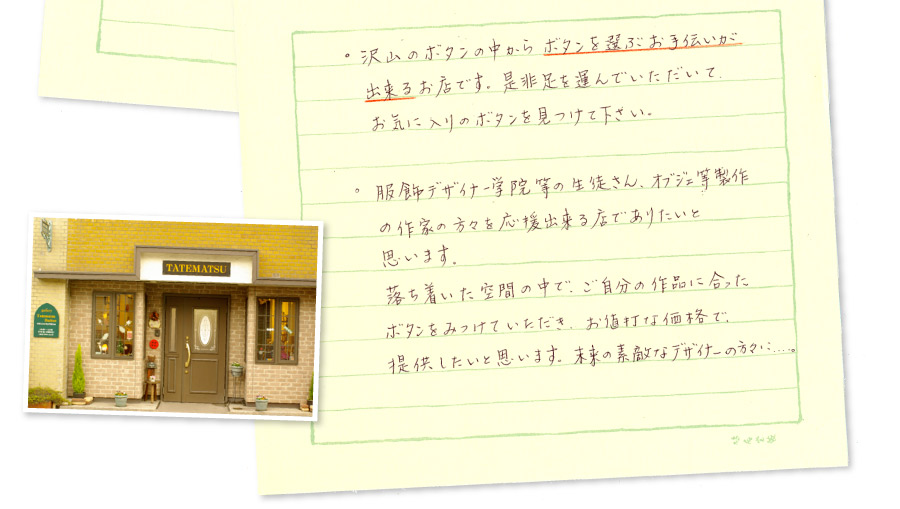 。沢山のボタンの中から ボタンを選ぶお手伝いが
出来るお店です。是非足を運んでいただいて、
お気に入りのボタンを見つけて下さい。
。服飾デザイナー学院等の生徒さん、オブジェ等製作
の作家の方々を応援出来る店でありたいと
思います。
落ち着いた空間の中で、ご自分の作品に合った
ボタンをみつけていただき、お値打な価格で、
提供したいと思います。未来の素敵なデザイナーの方々に……。
TATEMATSU
gallery